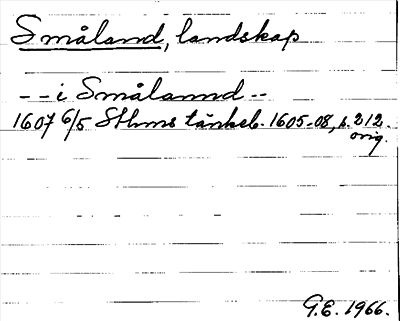 Småland, landskap
-- i Smålannd --
1607 6/5 Sthms tänkeb. 1605-08, s. 212.
orig.
G.E. 1966.